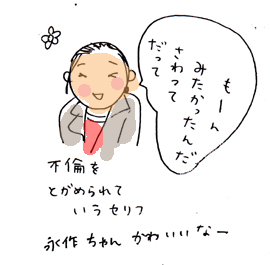 だって
さわって
みたかったんだ
もーん
不倫を
とがめられて
いうセリフ
永作ちゃん かわいいなー